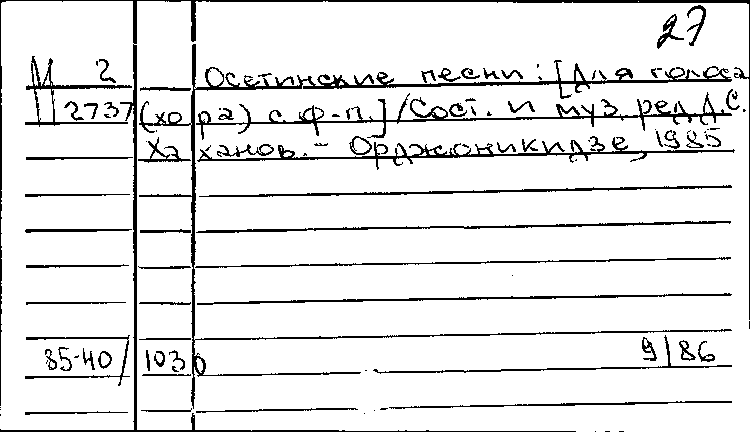 27
М 2 Осетинские песни: [Для голоса
2737 (хора) с ф-п.] / Сост. и муз. ред. Д.С.
Хаханов. - Орджоникидзе, 1985
85-40/1030 9/86